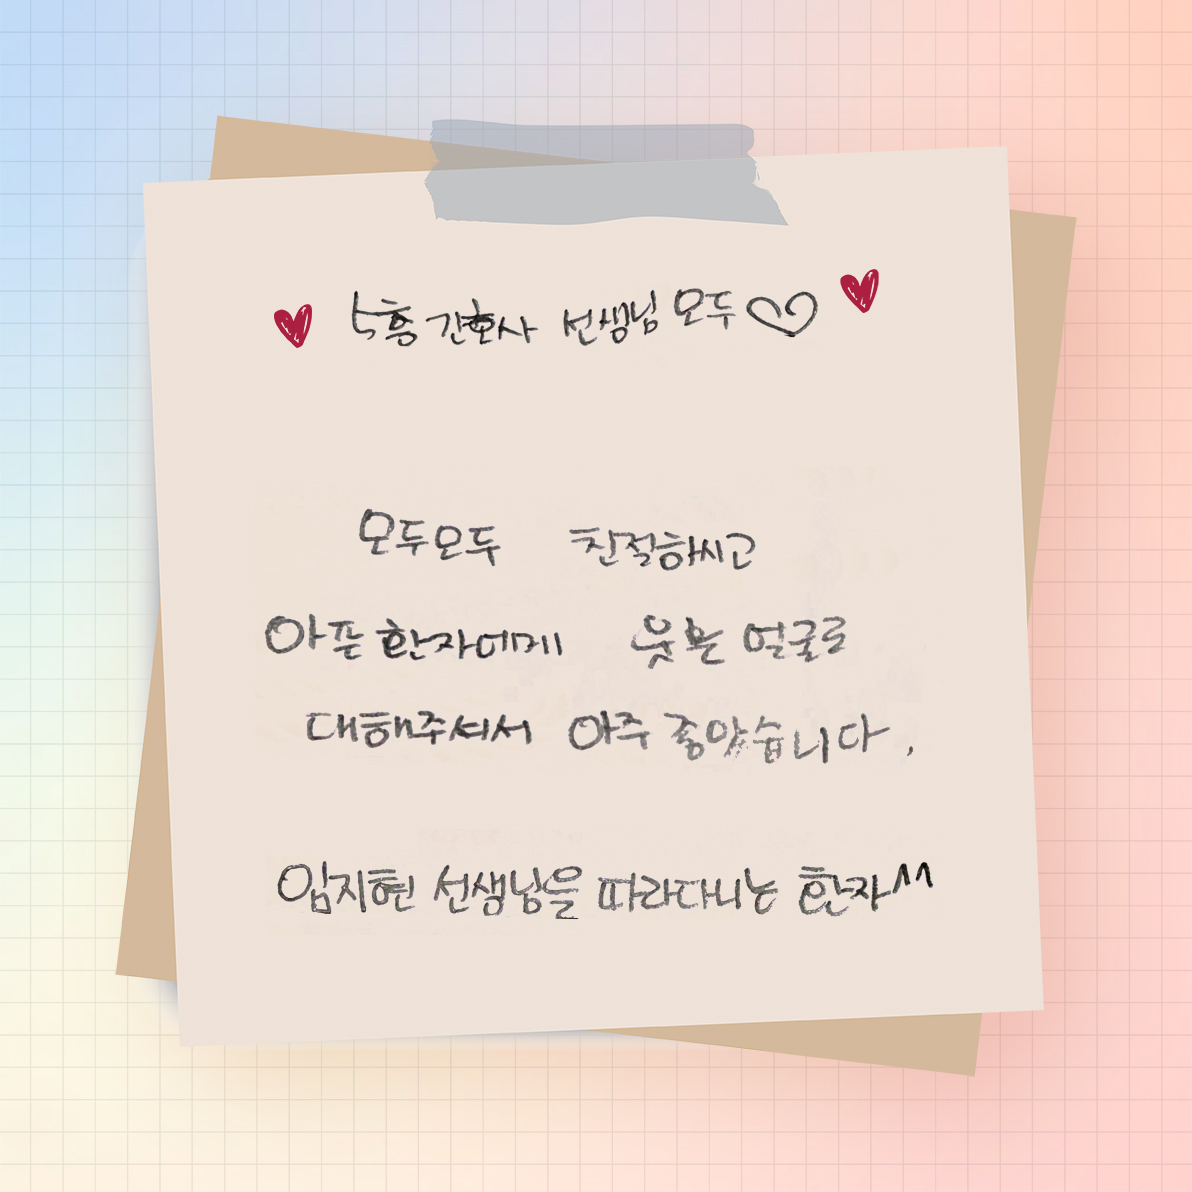 5층 간호사 선생님 모두♡
모두모두 친절하시고
아픈 환자에게 웃는 얼굴로
대해주셔서 아주 좋았습니다.
임지현 선생님을 따라다니는 환자^^